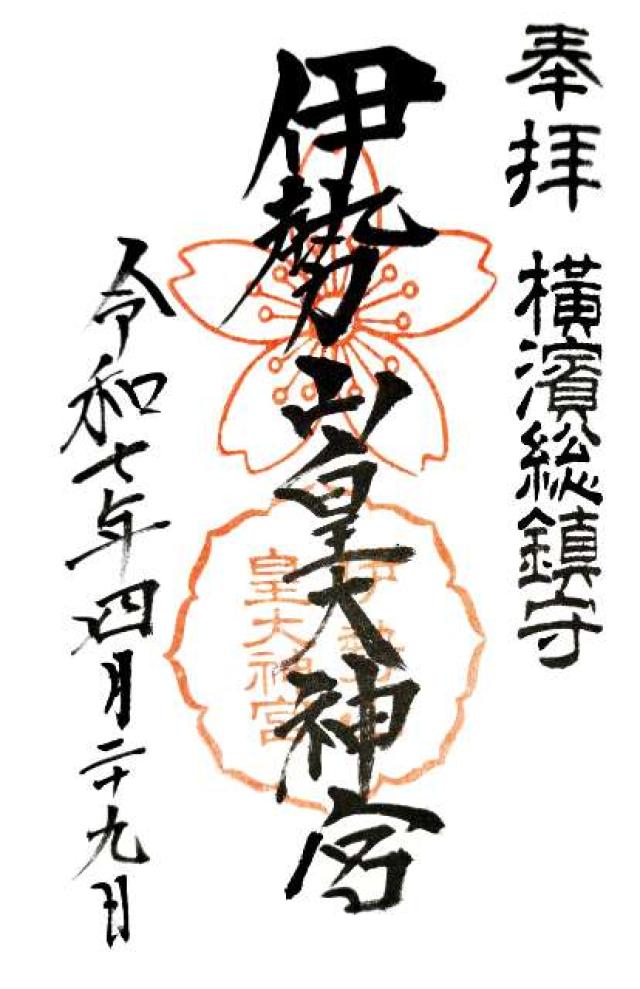 奉拝
横濱総鎮守
伊勢山皇大神宮
伊勢山
皇大神宮
令和七年四月二十九日